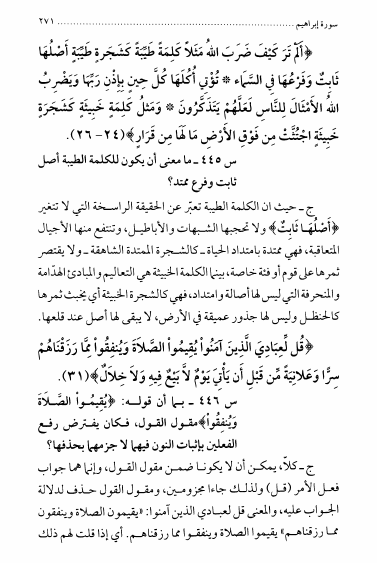 سورة إبراهيم ........................................ ٢٧١
﴿أَلَمْ تَرَ كَيْفَ ضَرَبَ اللهُ مَثَلاً كَلِمَةً طَيِّبَةً كَشَجَرَةٍ طَيِّبَةٍ أَصْلُهَا
ثَابِتٌ وَفَرْعُهَا فِي السَّمَاء * تُؤْتِي أُكُلَهَا كُلَّ حِينٍ بِإِذْنِ رَبِّهَا وَيَضْرِبُ
اللهُ الأَمْثَالَ لِلنَّاسِ لَعَلَّهُمْ يَتَذَكَّرُونَ * وَمَثلُ كَلِمَةٍ خَبِيثَةٍ كَشَجَرَةٍ
خَبِيثَةٍ اجْتُثَّتْ مِن فَوْقِ الأَرْضِ مَا لَهَا مِن قَرَارٍ﴾(٢٤-٢٦).
س ٤٤٥ ـ ما معنى أن يكون للكلمة الطيبة أصل
ثابت وفرع ممتد؟
ج ـ حيث ان الكلمة الطيبة تعبّر عن الحقيقة الراسخة التي لا تتغير
﴿أَصْلُهَا ثَابِتٌ﴾ ولا تحجبها الشبهات والأباطيل، وتنتفع منها الأجيال
المتعاقبة، فهي ممتدة بامتداد الحياة ـ كالشجرة الممتدة الشاهقة ـ ولا يقتصر
ثمرها على قوم أو فئة خاصة، بينما الكلمة الخبيثة هي التعاليم والمبادئ الهدّامة
والمنحرفة التي ليس لها أصالة وامتداد، فهي كالشجرة الخبيثة أي يخبث ثمرها
كالحنظل وليس لها جذور عميقة في الأرض، لا يبقى لها أصل عند قلعها.
﴿قُل لِّعِبَادِيَ الَّذِينَ آمَنُواْ يُقِيمُواْ الصَّلاَةَ وَيُنفِقُواْ مِمَّا رَزَقْنَاهُمْ
سِرًّا وَعَلانِيَةً مِّن قَبْلِ أَن يَأْتِيَ يَوْمٌ لاَّ بَيْعٌ فِيهِ وَلاَ خِلاَلٌ﴾(٣١).
س ٤٤٦ ـ بما أن قوله: ﴿يُقِيمُواْ الصَّلاَةَ
وَيُنفِقُواْ﴾مقول القول، فكان يفترض رفع
الفعلين بإثبات النون فيهما لا جزمهما بحذفها؟
ج ـ كلاّ، يمكن أن لا يكونا ضمن مقول القول، وإنما هما جواب
فعل الأمر (قل) ولذلك جاءا مجزومين، ومقول القول حذف لدلالة
الجواب عليه، والمعنى قل لعبادي الذين آمنوا: «يقيمون الصلاة وينفقون
مما رزقناهم» يقيموا الصلاة وينفقوا مما رزقناهم. أي إذا قلت لهم ذلك